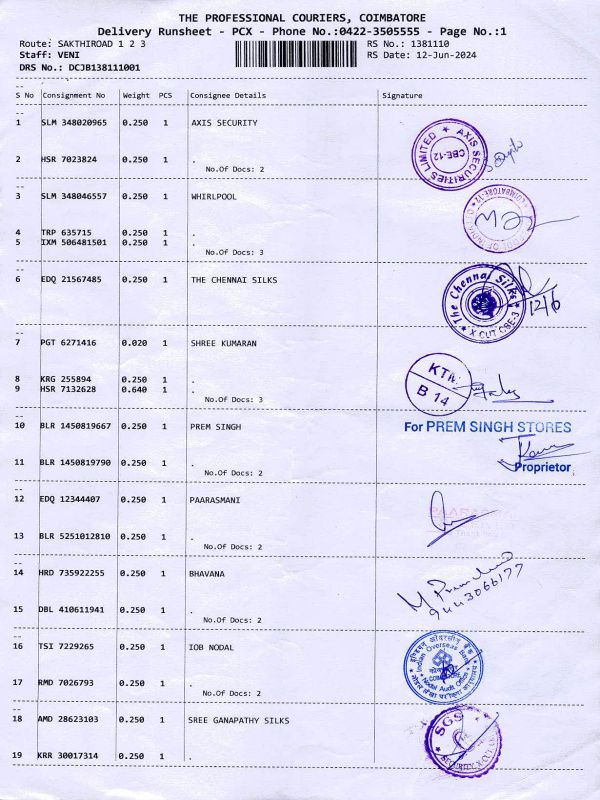 THE PROFESSIONAL COURIERS, COIMBATORE
Delivery Runsheet - PCX - Phone No.:0422-3505555 - Page No.:1
Route: SAKTHIROAD 1 2 3 RS No.: 1381110
Staff: VENI RS Date: 12-Jun-2024
DRS No.: DCJB138111001
S No Consignment No Weight PCS Consignee Details Signature
1 SLM 348020965 0.250 1 AXIS SECURITY
AXIS SECURITIES LIMITED
CBE-12
2 HSR 7023824 0.250 1 .
No.Of Docs: 2
3 SLM 348046557 0.250 1 WHIRLPOOL
COIMBATORE-12
4 TRP 635715 0.250 1 .
5 IXM 506481501 0.250 1 .
No.Of Docs: 3
6 EDQ 21567485 0.250 1 THE CHENNAI SILKS
The Chennai Silks
X CUT CBE-3
12/6
7 PGT 6271416 0.020 1 SHREE KUMARAN
KTM
B 14
8 KRG 255894 0.250 1 .
9 HSR 7132628 0.640 1 .
No.Of Docs: 3
10 BLR 1450819667 0.250 1 PREM SINGH
For PREM SINGH STORES
Proprietor
11 BLR 1450819790 0.250 1 .
No.Of Docs: 2
12 EDQ 12344407 0.250 1 PAARASMANI
13 BLR 5251012810 0.250 1 .
No.Of Docs: 2
14 HRD 735922255 0.250 1 BHAVANA
9443066177
15 DBL 410611941 0.250 1 .
No.Of Docs: 2
16 TSI 7229265 0.250 1 IOB NODAL
Indian Overseas Bank
Nodal Audit Office
17 RMD 7026793 0.250 1 .
No.Of Docs: 2
18 AMD 28623103 0.250 1 SREE GANAPATHY SILKS
SGS
SECURITY
19 KRR 30017314 0.250 1 .